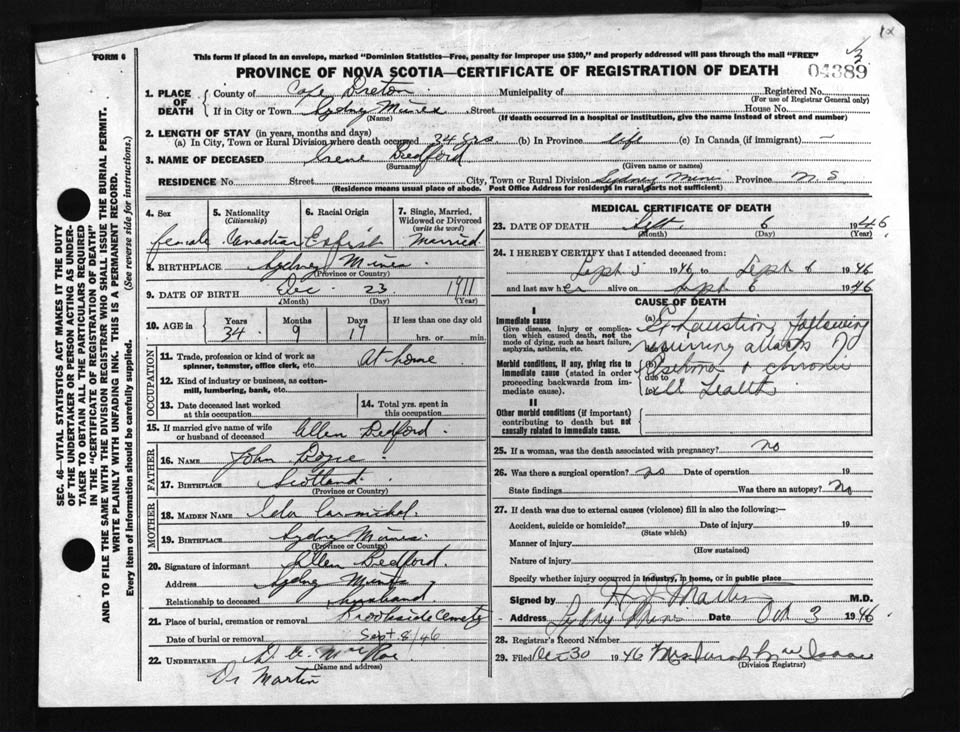 1x
1/3
FORM 6
This form if placed in an envelope, marked "Dominion Statistics—Free, penalty for improper use $300," and properly addressed will pass through the mail "FREE"
PROVINCE OF NOVA SCOTIA—CERTIFICATE OF REGISTRATION OF DEATH
04389
1. PLACE OF DEATH
County of Cape Breton Municipality of Registered No.
(For use of Registrar General only)
If in City or Town Sydney Mines Street House No.
(Name) (If death occurred in a hospital or institution, give the name instead of street and number)
2. LENGTH OF STAY (in years, months and days)
(a) In City, Town or Rural Division where death occurred 34 yrs. (b) In Province life (c) In Canada (if immigrant) —
3. NAME OF DECEASED Irene Bedford
(Surname) (Given name or names)
RESIDENCE No. Street City, Town or Rural Division Sydney Mines Province N. S
(Residence means usual place of abode. Post Office Address for residents in rural parts not sufficient)
4. Sex
female
5. Nationality
(Citizenship)
Canadian
6. Racial Origin
English
7. Single, Married, Widowed or Divorced
(write the word)
Married
8. BIRTHPLACE Sydney Mines
(Province or Country)
9. DATE OF BIRTH Dec. 23 1911
(Month) (Day) (Year)
10. AGE in Years Months Days If less than one day old
34 9 17 hrs. or min.
OCCUPATION
11. Trade, profession or kind of work as spinner, teamster, office clerk, etc. At home
12. Kind of industry or business, as cotton-mill, lumbering, bank, etc.
13. Date deceased last worked at this occupation
14. Total yrs. spent in this occupation
15. If married give name of wife or husband of deceased Allen Bedford.
FATHER
16. Name John
17. Birthplace Scotland
(Province or Country)
MOTHER
18. Maiden Name
19. Birthplace Sydney Mines
(Province or Country)
20. Signature of informant Allen Bedford.
Address Sydney Mines
Relationship to deceased husband
21. Place of burial, cremation or removal Brookside Cemetery
Date of burial or removal Sept 8/46
22. UNDERTAKER
(Name and address)
Dr Martin
MEDICAL CERTIFICATE OF DEATH
23. DATE OF DEATH Sept. 6 1946
(Month) (Day) (Year)
24. I HEREBY CERTIFY that I attended deceased from
Sept 3 1946, to Sept 6 1946
and last saw her alive on Sept 6 1946
CAUSE OF DEATH
I
Immediate cause
Give disease, injury or complication which caused death, not the mode of dying, such as heart failure, asphyxia, asthenia, etc.
(a) Exhaustion following
recurring attacks of
Morbid conditions, if any, giving rise to immediate cause (stated in order proceeding backwards from immediate cause).
(b) due to
Asthma & chronic
(c) ill health
II
Other morbid conditions (if important) contributing to death but not causally related to immediate cause.
25. If a woman, was the death associated with pregnancy? no
26. Was there a surgical operation? no Date of operation 19
State findings Was there an autopsy? No
27. If death was due to external causes (violence) fill in also the following:—
Accident, suicide or homicide? Date of injury 19
(State which)
Manner of injury
(How sustained)
Nature of injury
Specify whether injury occurred in industry, in home, or in public place
Signed by Martin M.D.
Address Sydney Mines Date Oct 3 1946
28. Registrar's Record Number
29. Filed 30 1946 Mrs Sarah
(Division Registrar)
SEC. 46—VITAL STATISTICS ACT MAKES IT THE DUTY
OF THE UNDERTAKER OR PERSON ACTING AS UNDER-
TAKER TO OBTAIN ALL THE PARTICULARS REQUIRED
IN THE "CERTIFICATE OF REGISTRATION OF DEATH"
AND TO FILE THE SAME WITH THE DIVISION REGISTRAR WHO SHALL ISSUE THE BURIAL PERMIT.
WRITE PLAINLY WITH UNFADING INK. THIS IS A PERMANENT RECORD.
Every item of information should be carefully supplied. (See reverse side for instructions.)